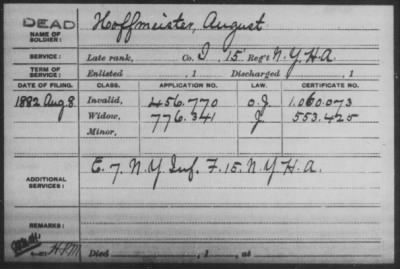 DEAD
NAME OF SOLDIER: Hoffmeister, August
SERVICE: Late rank, Co. I, 15 Reg't N.Y.H.A.
TERM OF SERVICE: Enlisted , 1 Discharged , 1
DATE OF FILING. CLASS. APPLICATION NO. LAW. CERTIFICATE NO.
1882 Aug 8 Invalid, 456.770 O.J. 1.060.073
Widow, 776.341 J 553.425
Minor,
ADDITIONAL SERVICES: E. 7. N.Y. Inf. F. 15. N.Y.H.A.
REMARKS:
Died , 1 , at